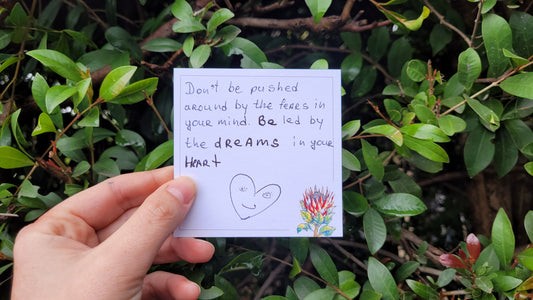 Don't be pushed
around by the feres in
your mind. Be led by
the DREAMS in your
HEART